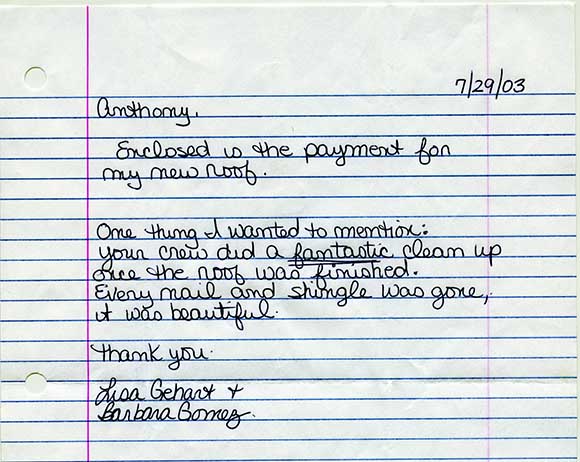 7/29/03
Anthony,
Enclosed is the payment for
my new roof.
One thing I wanted to mention:
your crew did a fantastic clean up
once the roof was finished.
Every nail and shingle was gone,
it was beautiful.
Thank you.
Lisa Gehart +
Barbara Gomez.